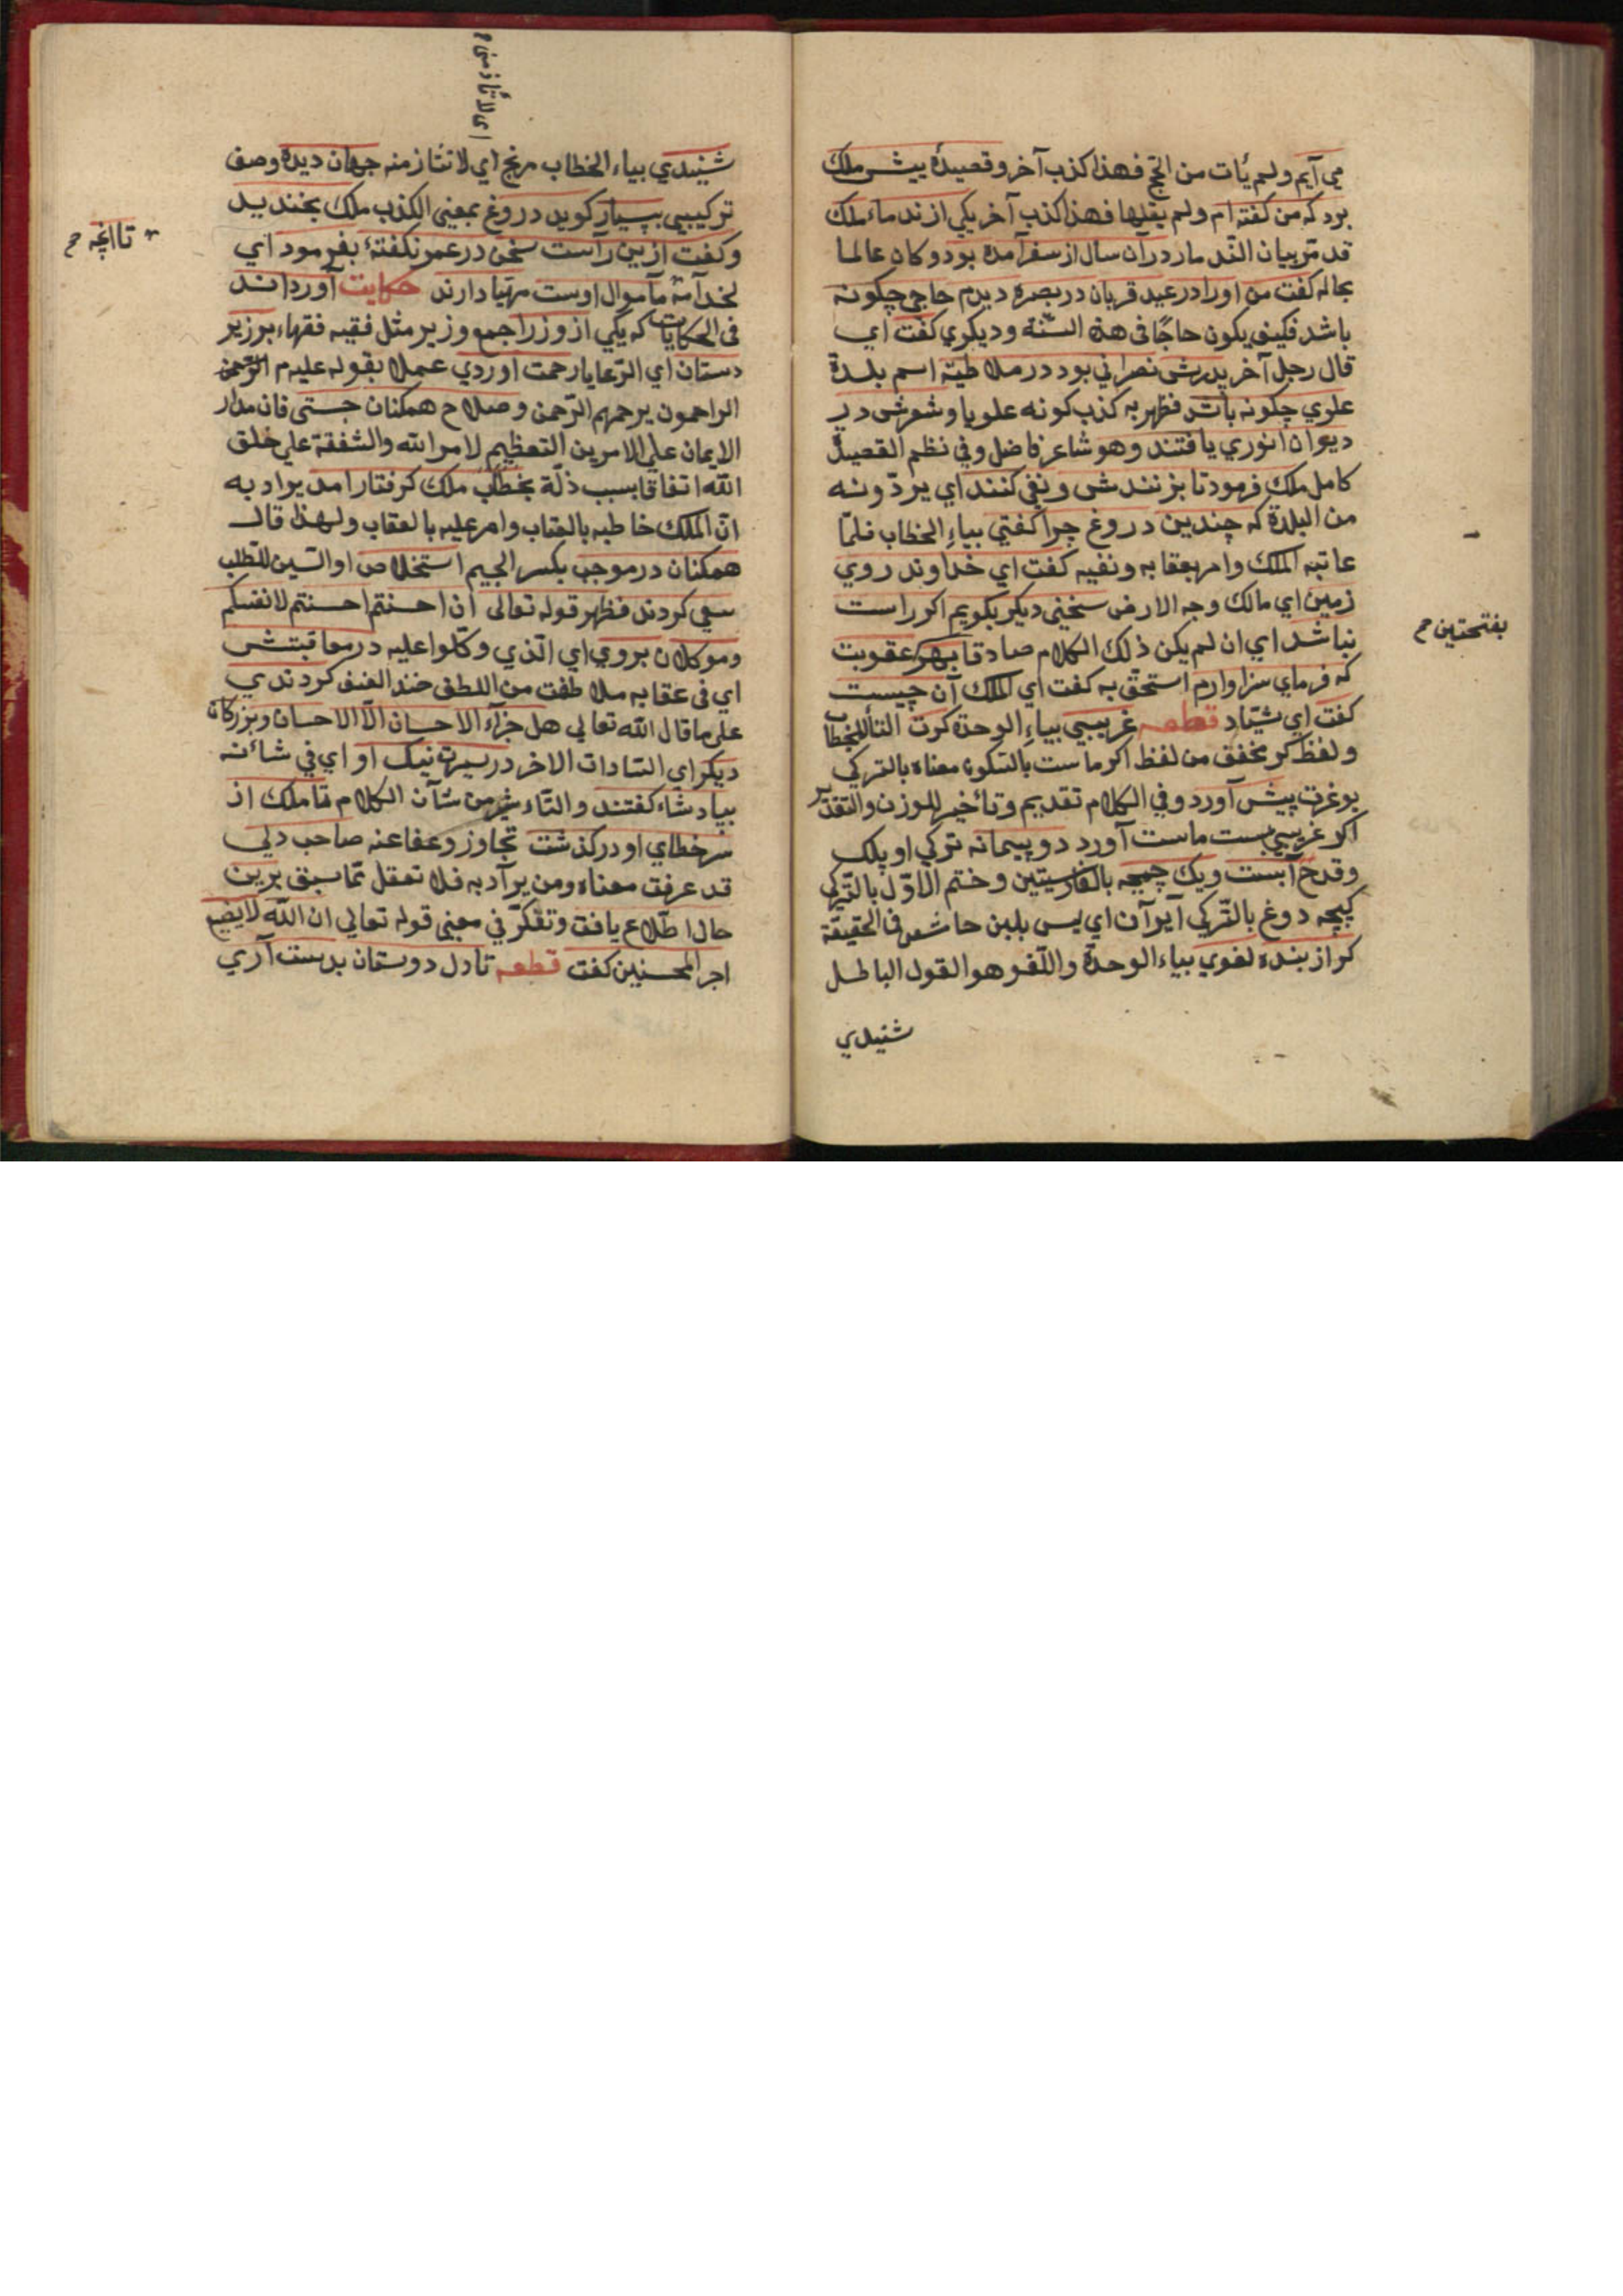 مي آيم ولم يأت من الحج فهذا كذب آخر وقصيدهٔ پيش ملك
برد كه من كفته ام ولم يقلها فهذا كذب آخر يكي از ندماء ملك
قد مرّ بيان النّدما در آن سال از سفر آمده بود وكان عالما
بحاله كفت من اورا در عيد قربان در بصره ديدم حاجي چكونه
باشد فكيف يكون حاجًا في هذه السّنة وديكري كفت اي
قال رجل آخر پدرش نصراني بود در ملاطيّه اسم بلدة
علوي چكونه باشد فظهر به كذب كونه علويا وشعرش در
ديوان انوري يافتند وهو شاعر فاضل وفي نظم القصيدة
كامل ملك فرمود تا بزنندش ونفي كنند اي يردّونه
من البلدة كه چندين دروغ چرا كفتي بياءِ الخطاب فلمّا
عاتبه الملك وامر بعقابه ونفيه كفت اي خداوند روي
زمين اي مالك وجه الارض سخني ديكر بكويم اكر راست
نباشد اي ان لم يكن ذلك الكلام صادقا بهر عقوبت
بفتحتين م
كه فرماي سزاوارم استحقّ به كفت اي الملك آن چيست
كفت اي شيّاد قطعه غريبي بياءِ الوحدة كرت التا للخطاب
ولفظ كر مخفف من لفظ اكر ماست بالسكون معناه بالتركي
يوغرت پيش آورد وفي الكلام تقديم وتأخير للوزن والتقدير
اكر غريبي بست ماست آورد دو پيمانه تركي اوپلك
وقدح آبست ويك چمچه بالفارسيتين وختم الاوّل بالتّركي
كپچه دوغ بالتّركي آيران اي ليس بلبن حاشر في الحقيقة
كر از بنده لغوي بياء الوحدة واللّغو هو القول الباطل
شنيدي
اي لا تتأذ منى م
شنيدي بياء الخطاب مرنج اي لا تتأذ منه جهان ديده وصف
تركيبي بسيار كويد دروغ بمعنى الكذب ملك بخنديد
وكفت ازين راست سخن در عمر نكفتهٔ بفرمود اي
تا انچه م
لخدامه مأمول اوست مهيّا دارند حكايت آورداند
في الحكايات كه يكي از وزرا جمع وزير مثل فقيه فقهاء بر زير
دستان اي الرّعايا رحمت آوردي عملا بقوله عليه م الرّحمن
الراحمون يرحمهم الرّحمن وصلاح همكنان جستي فان مدار
الايمان على الامرين التعظيم لامر الله والشفقة على خلق
الله اتفاقا بسبب ذلّة بخطاب ملك كرفتار آمد يراد به
انّ الملك خاطبه بالعتاب وامر عليه بالعقاب ولهذا قال
همكنان در موجب بكسر الجيم استخلاص او السّين للطّلب
سعي كردند فظهر قوله تعالى ان احسنتم احسنتم لانفسكم
وموكلان بروي اي الّذي وكّلوا عليه در معاقبتش
اي في عقابه ملاطفت من اللطف ضد العنف كردندي
على ما قال الله تعالى هل جزآء الاحسان الّا الاحسان وبزركان
ديكر اي السّادات الاخر در سيرت نيك او اي في شائنه
بپادشاه كفتند والثّناء شرّ من شأن الكلام تا ملك از
سر خطاي او در كذشت تجاوز وعفا عنه صاحب دلي
قد عرفت معناه ومن يراد به فلا تغفل عمّا سبق برين
حال اطّلاع يافت وتفكّر في معنى قوله تعالى ان الله لا يضيع
اجر المحسنين كفت قطعه تا دل دوستان بدست آري